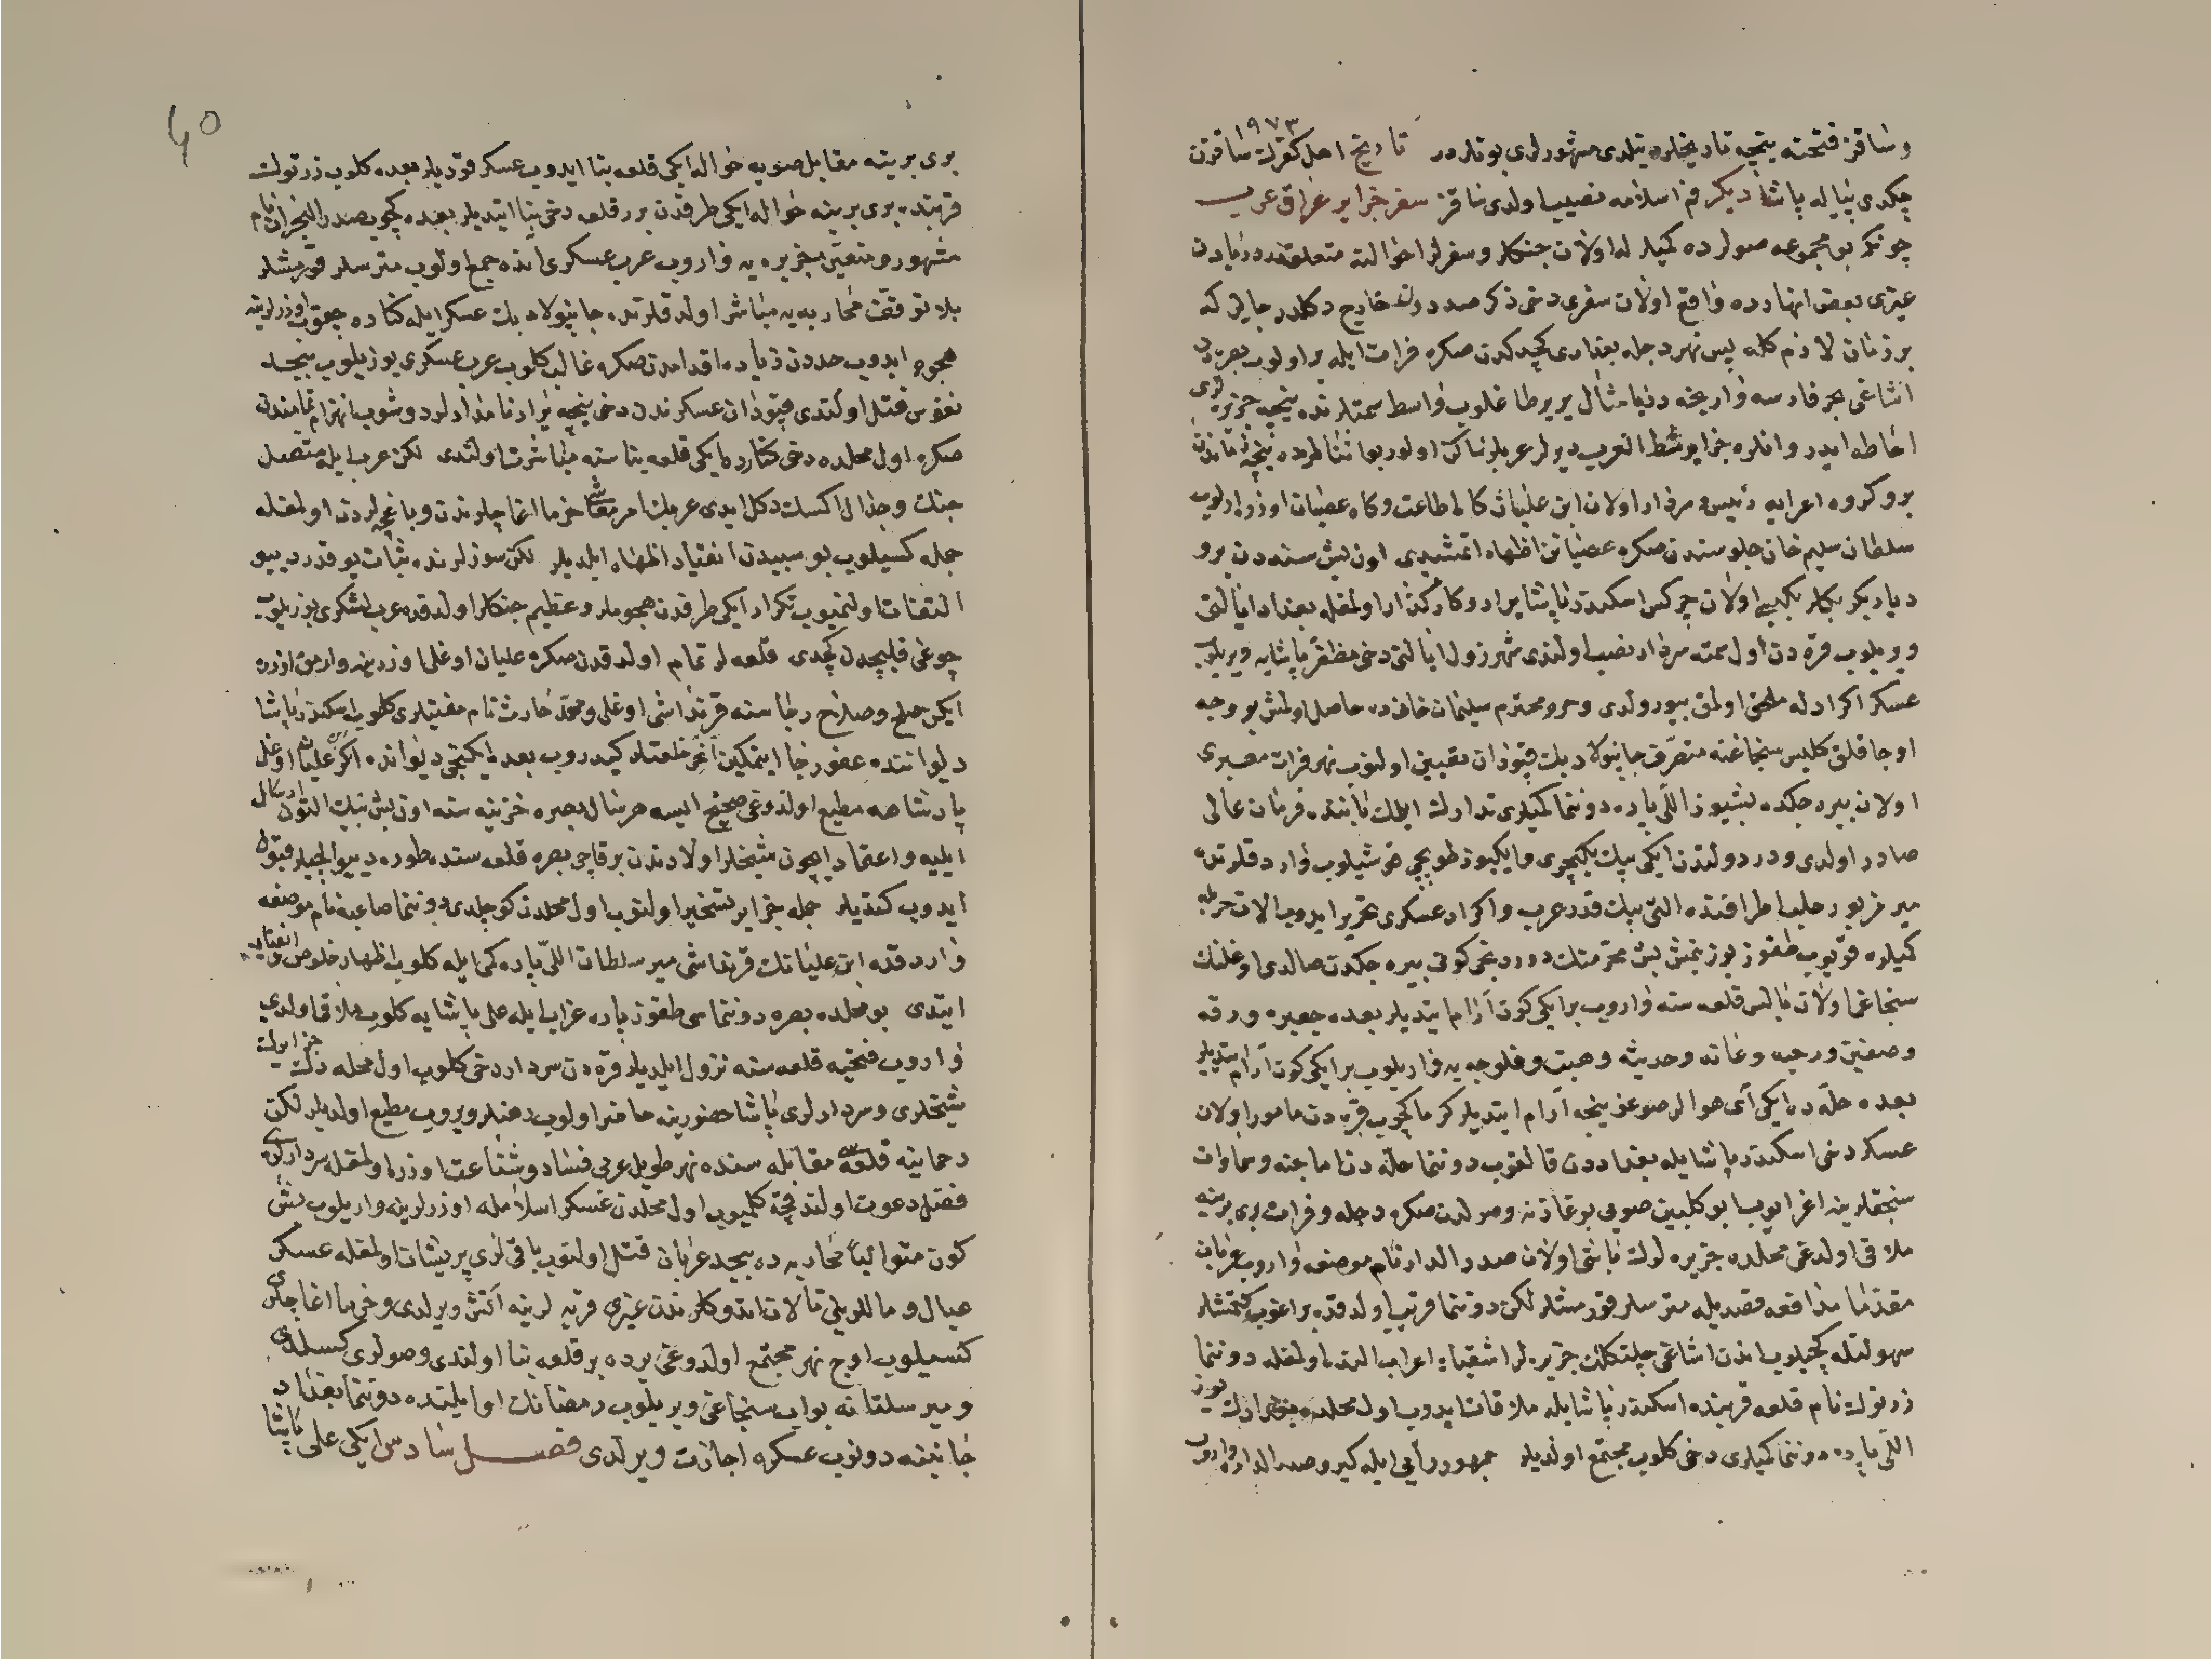 و ساقز فتحنه نیجه تاریخلر دینلدی مشهورلری بونلردر تاریخ اهل کفرک ساقزن
۹۷۳
چکدی پیاله پاشا دیکر فم اسلامه نصیب اولدی ساقز سفر جزایر عراق عرب
چونکه بو مجموعه صولرده کمیلر له اولان جنکلر و سفرلر احوالنه متعلقدر دریادن
غیری بعض انهارده واقع اولان سفری دخی ذکر صددن خارج دکلدر جایز که
بر زمان لازم کله پس نهر دجله بغدادی کچدکدن صکره فرات ایله بر اولوب بصره دن
اشاغی بحر فارسه وارنجه دریا مثال یر یر طاغلوب واسط سمتلرنده نیجه جزیره لری
احاطه ایدر و انلره جزایر شط العرب دیرلر عربلر ساکن اولور بو اثنالرده نیجه زماندن
برو کروه اعرابه رئیس و سردار اولان ابن علیان کاه اطاعت و کاه عصیان اوزره اولوب
سلطان سلیم خان جلوسندن صکره عصیانن اظهار اتمشیدی اون بش سنه دن برو
دیاربکر بکلربکیسی اولان چرکس اسکندر پاشا یرار و کارکذار اولمغله بغداد ایالتی
ویریلوب قره دن اول سمته سردار نصب اولندی شهرزول ایالتی دخی مظفر پاشایه ویریلوب
عسکر اکراد له ملحق اولمق بیورولدی و مرحوم محترم سلیمان خاندن حاصل اولمش بو وجه
اوجاقلق کلیس سنجاغنه متصرف جانپولاد بک قپودان تعیین اولنوب نهر فرات معبری
اولان بیره جکده بشیوز اللی پاره دوننما کمیلری تدارک ایلمک بابنده فرمان عالی
صادر اولدی و در دولتدن ایکی بیک یکیچری و ایکیوز طوپچی قوشیلوب وارد قلرنده
میر مزبور حلب اطرافنده التی بیک قدر عرب و اکراد عسکری تحریر ایدوب الات حربله
کمیلره قویوب طقوز یوز یتمش بش محرمنک دوردنجی کونی بیره جکدن صالدی اوغلنک
سنجاغی اولان بالس قلعه سنه واروب بر ایکی کون آرام ایتدیلر بعده جعبره و رقه
و صفین و رحبه و عانه و حدیثه و هیت و فلوجه یه واریلوب بر ایکی کون آرام ایتدیلر
بعده حله ده ایکی آی هوالر صوغینجه آرام ایتدیلر کرما کچوب قره دن مامور اولان
عسکر دخی اسکندر پاشا ایله بغداددن قالقوب دوننما حله دن رماحیه و سماوات
سنجقلرینه اغرایوب ابو کلبین صویی بوغازنه وصولدن صکره دجله و فرات بری برینه
ملاقی اولدغی محلده جزیره لرک باشی اولان صدر الدار نام موضعه واروب عربان
مقدما مدافعه قصدیله مترسلر قورمشلر لکن دوننما قریب اولدقده براغوب کتمشلر
سهولتله کچیلوب اندن اشاغی چلتکلک جزیره لر اشقیاء اعراب النده اولمغله دوننما
زرتوک نام قلعه قربنده اسکندر پاشا ایله ملاقات ایدوب اول محلده بصره نک یوز
اللی پاره دوننما کمیلری دخی کلوب مجتمع اولدیلر جمهور رأیی ایله کیرو صدر الداره واروب
40
بری برینه مقابل صویه حواله ایکی قلعه بنا ایدوب عسکر قودیلر بعده کلوب زرتوک
قربنده بری برینه حواله ایکی طرفدن برر قلعه دخی بنا ایتدیلر بعده کچوب صدر البحران نام
مشهور و متعین جزیره یه واروب عرب عسکری انده جمع اولوب مترسلر قورمشلر
بلا توقف محاربه یه مباشر اولدقلرنده جانپولاد بک عسکر ایله کناره چیقوب اوزرلرینه
هجوم ایدوب حددن زیاده اقدامدن صکره غالب کلوب عرب عسکری بوزیلوب بیحد
نفوس قتل اولندی قپودان عسکرندن دخی نیجه یرار نامدارلر دوشوب انهزام تمامندن
صکره اول محلده دخی کنارده ایکی قلعه بناسنه مباشرت اولندی لکن عرب ایله متصل
جنک و جدال اکسک دکل ایدی عربک امر معاشی خرما اغاچلرندن و باغچه لردن اولمغله
جمله کسیلوب بو سببدن انقیاد اظهار ایلدیلر لکن سوزلرنده ثبات یوقدر دیو
التفات اولنمیوب تکرار ایکی طرفدن هجوملر و عظیم جنکلر اولدقده عرب لشکری بوزیلوب
چوغی قلیچدن کچدی قلعه لر تمام اولدقدن صکره علیان اوغلی اوزرینه وارمق اوزره
ایکن صلح و صلاح رجاسنه قرنداشی اوغلی و محمد حارث نام مفتیلری کلوب اسکندر پاشا
دیواننده عفو رجا ایتمکین اغر خلعتلر کیدروب بعد ایکنجی دیوانده اکر علیان اوغلی
پادشاهه مطیع اولدوغی صحیح ایسه هر سال بصره خزینه سنه اون بش بیک التون ارسال
ایلیه و اعتماد ایچون شیخلر اولادندن بر قاچی بصره قلعه سنده طوره دیو ایلچیلر قبول
ایدوب کتدیلر جمله جزایر تسخیر اولنوب اول محلدن کوچلدی دوننما صاعیه نام موضعه
واردقده ابن علیانک قرنداشی میر سلطان اللی پاره کمی ایله کلوب اظهار خلوص و انقیاد
ایتدی بو محلده بصره دوننماسی طقوز پاره غراب ایله علی پاشا یه کلوب ملاقی اولدی
واروب فتحیه قلعه سنه نزول ایلدیلر قره دن سردار دخی کلوب اول محله دک جزایرک
شیخلری و سردارلری پاشا حضورینه حاضر اولوب رهنلر ویروب مطیع اولدیلر لکن
رحمانیه قلعه سی مقابله سنده نهر طویل عربی فساد و شناعت اوزره اولمغله سردارلری
فضل دعوت اولندقجه کلمیوب اول محلدن عسکر اسلامله اوزرلرینه واریلوب بش
کون متوالیاً محاربه ده بیحد عربان قتل اولنوب باقیلری پریشان اولمغله عسکر
عیال و ماللریلی تالان ایدوب کلرندن غیری قریه لرینه آتش ویرلدی و خرما اغاجلری
کسیلوب اوچ نهر مجتمع اولدوغی یرده بر قلعه بنا اولندی و صولری کسیلدی
و میر سلطانه بواب سنجاغی ویریلوب رمضانک اوایلنده دوننما بغداد
جانبنه دونوب عسکره اجازت ویرلدی فصل سادس ایکی علی پاشا